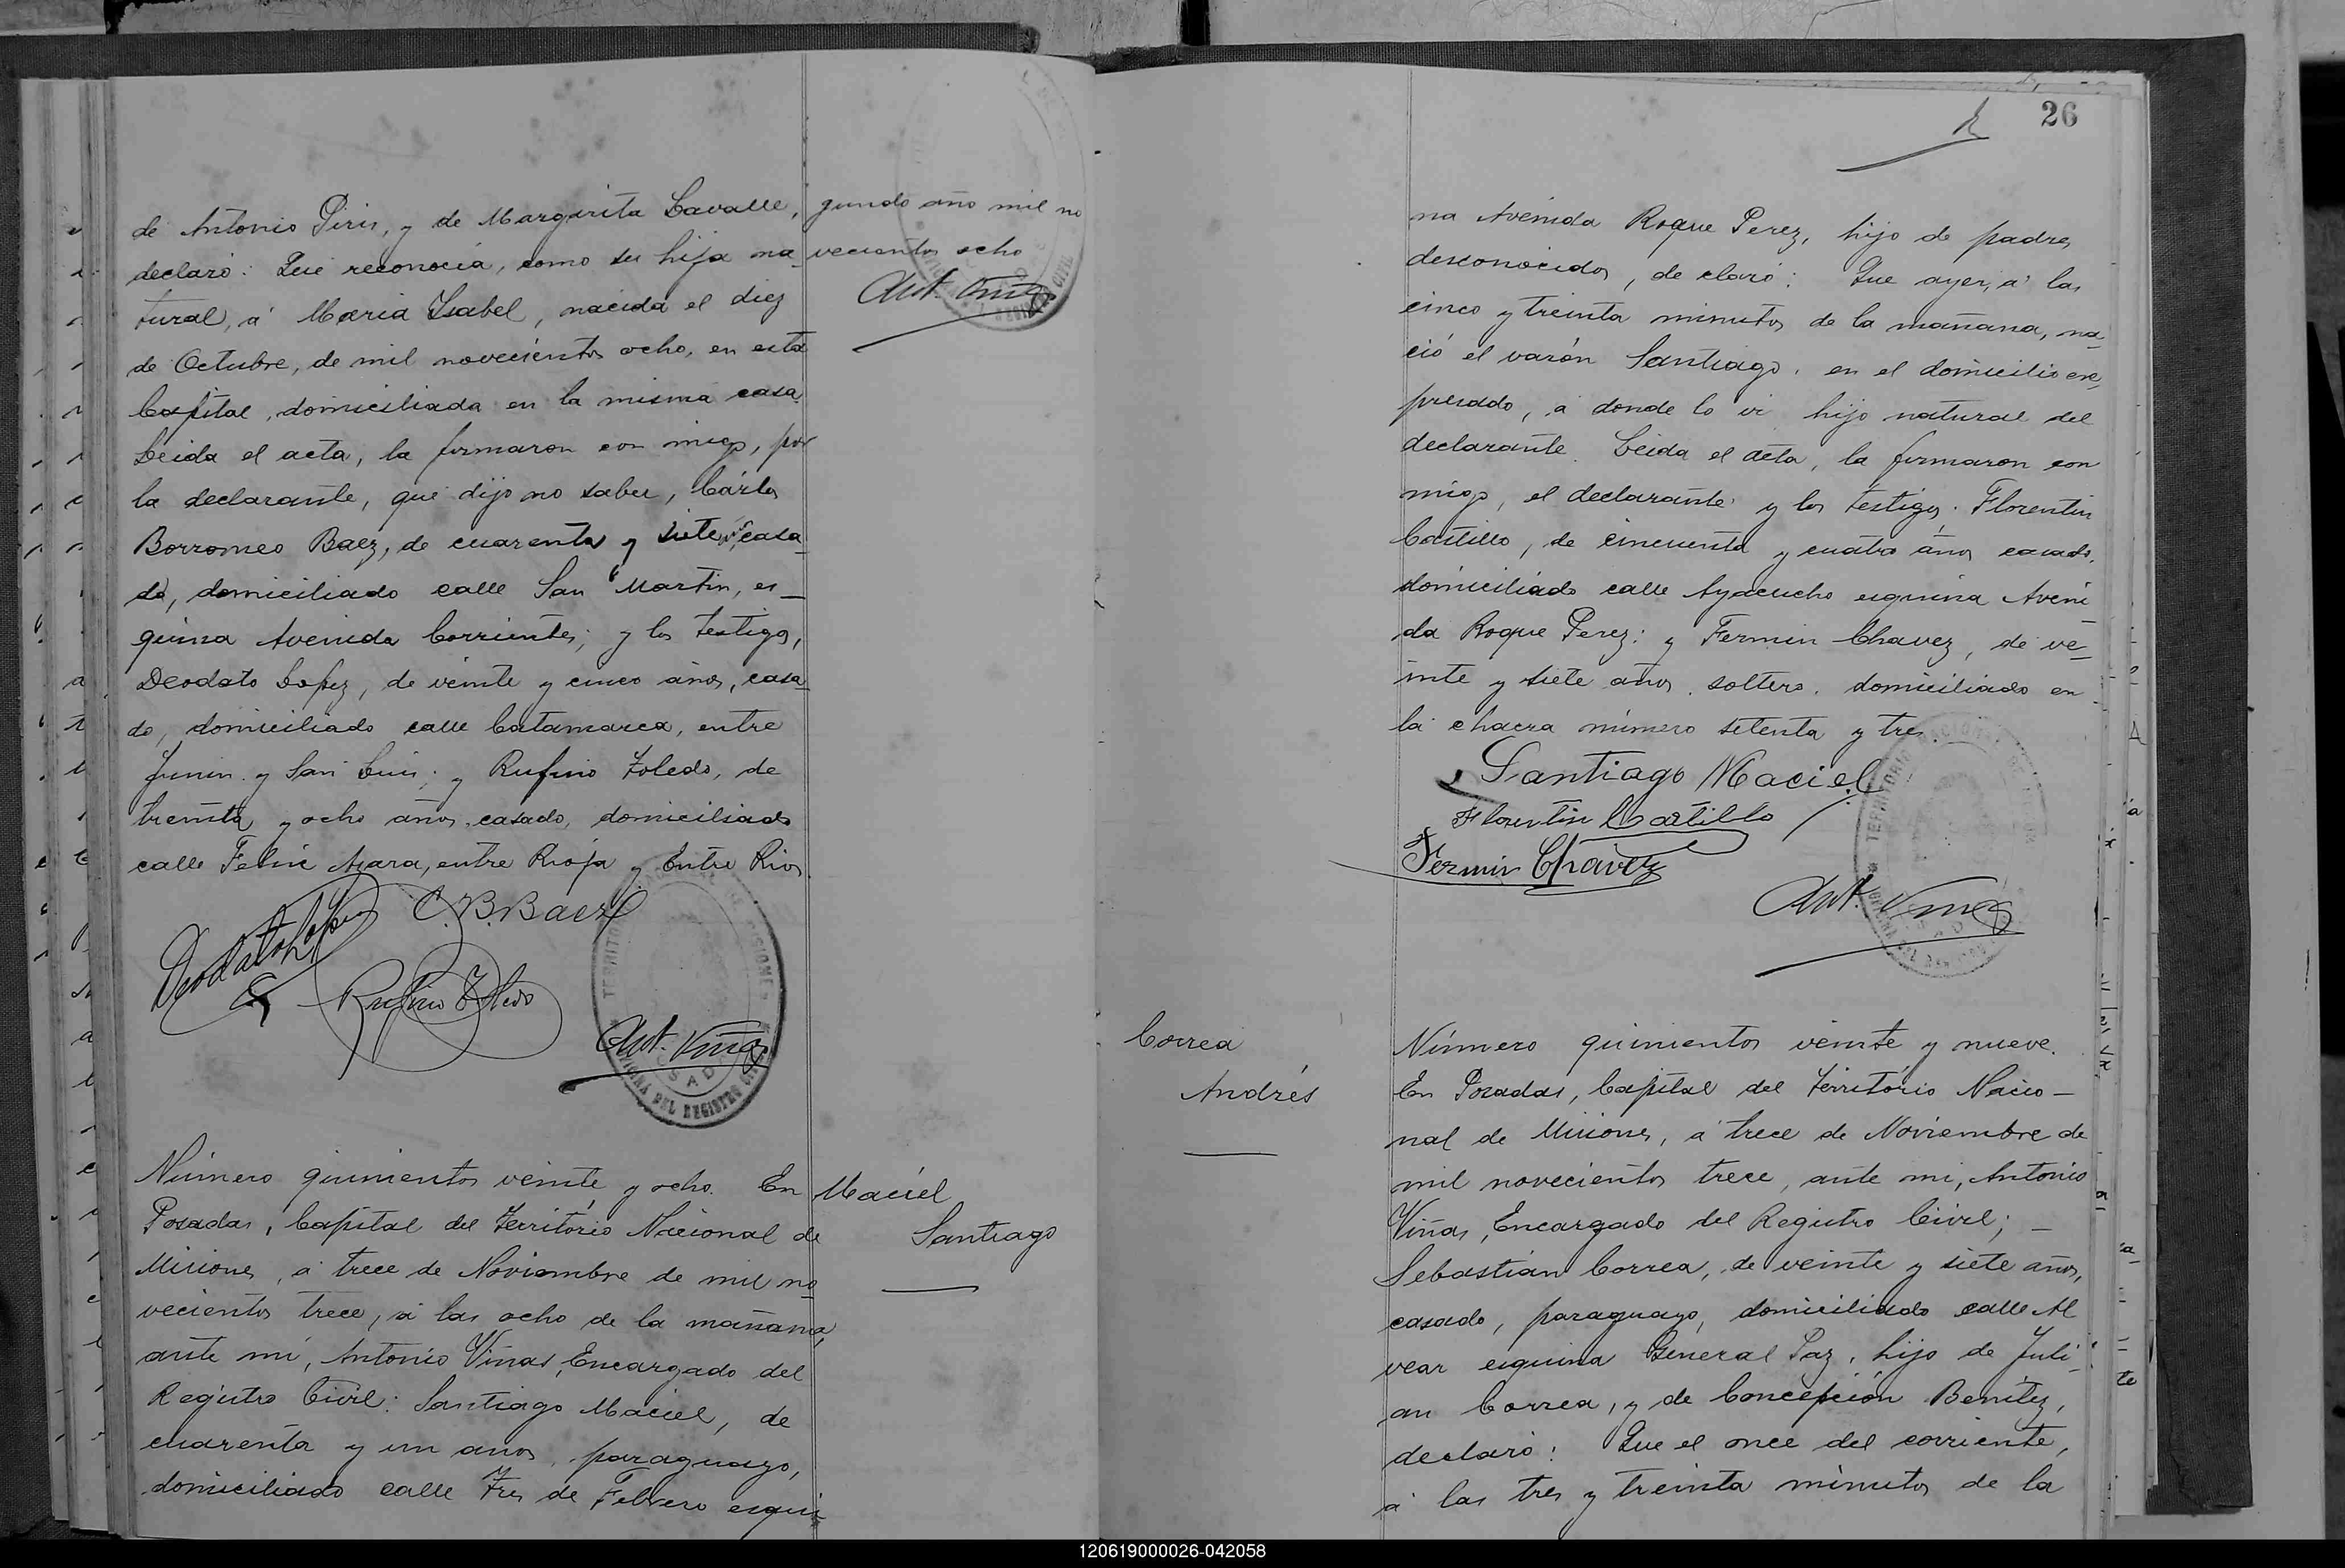 de Antonio Piris, y de Margarita Lavalle,
declaró: Que reconocía, como su hija na_
tural, á María Ysabel, nacida el diez
de Octubre, de mil novecientos ocho, en esta
Capital, domiciliada en la misma casa.
Leida el acta, la firmaron con migo, por
la declarante, que dijo no saber, Cárlos
Borromeo Baez, de cuarenta y siete, casa_
do, domiciliado calle San Martin, es_
quina Avenida Corrientes; y los testigos,
Deodato Lopez, de veinte y cinco años, casa_
do, domiciliado calle Catamarca, entre
Junin y San Luis; y Rufino Toledo, de
treinta y ocho años, casado, domiciliado
calle Felix Azara, entre Rioja y Entre Rios.
C. B. Baez
Deodato Lopez
Rufino Toledo
Ant. Viñas
gundo año mil no
vecientos ocho
Ant. Viñas
Número quinientos veinte y ocho. En
Posadas, Capital del Territorio Nacional de
Misiones, á trece de Noviembre de mil no_
vecientos trece, á las ocho de la mañana,
ante mí, Antonio Viñas, Encargado del
Registro Civil: Santiago Maciel, de
cuarenta y un años, paraguayo,
domiciliado calle Tres de Febrero esqui_
Maciel
Santiago
26
na Avenida Roque Perez, hijo de padres
desconocidos, declaró: Que ayer, á las
cinco y treinta minutos de la mañana, na_
ció el varón Santiago, en el domicilio ex_
presado, á donde lo vi hijo natural del
declarante. Leida el acta, la firmaron con
migo, el declarante y los testigos: Florentin
Castillo, de cincuenta y cuatro años casado,
domiciliado calle Ayacucho esquina Aveni
da Roque Perez; y Fermin Chavez, de ve_
inte y siete años, soltero, domiciliado en
la chacra número setenta y tres.
Santiago Maciel
Florentin Castillo
Fermin Chávez
Ant. Viñas
Correa
Andrés
Número quinientos veinte y nueve.
En Posadas, Capital del Territorio Nacio_
nal de Misiones, á trece de Noviembre de
mil novecientos trece, ante mi, Antonio
Viñas, Encargado del Registro Civil; _
Sebastián Correa, de veinte y siete años,
casado, paraguayo, domiciliado calle Al
vear esquina General Paz, hijo de Juli_
an Correa, y de Concepción Benítez,
declaró: Que el once del corriente,
á las tres y treinta minutos de la
120619000026-042058